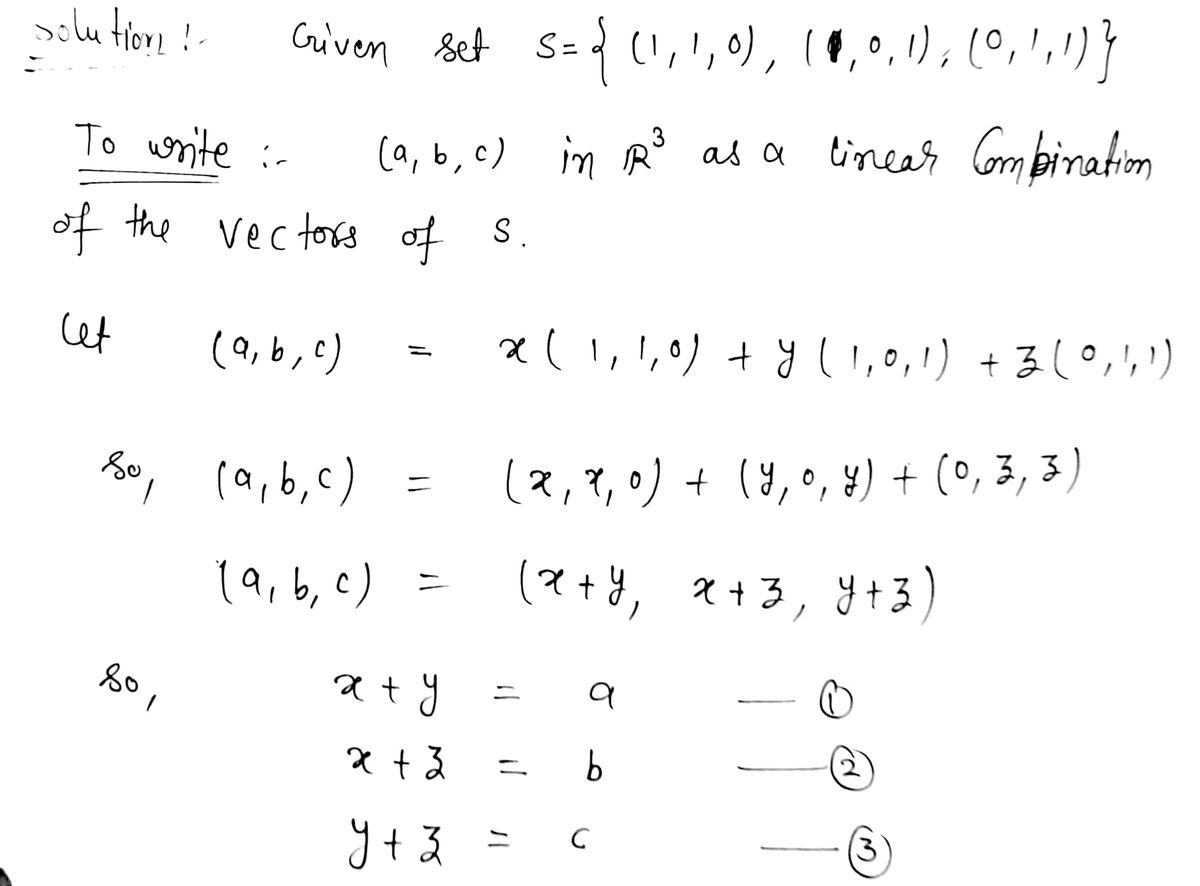 solution :- Given set S = { (1, 1, 0), (1, 0, 1), (0, 1, 1) }
To write :- (a, b, c) in ℝ³ as a linear Combination
of the vectors of S.
Let (a, b, c) = x ( 1, 1, 0) + y ( 1, 0, 1) + z ( 0, 1, 1)
so, (a, b, c) = (x, x, 0) + (y, 0, y) + (0, z, z)
(a, b, c) = (x + y, x + z, y + z)
so, x + y = a — ①
x + z = b — ②
y + z = c — ③